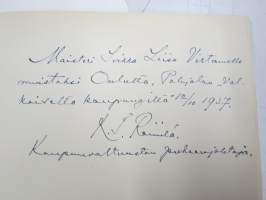 Maisteri Sirkka Liisa Virtaselle
muistoksi Oulusta, Pohjolan val-
koiselta kaupungilta 12/10 1937.
K. T. Räinilä.
Kaupunvaltuuston puheenjohtaja.